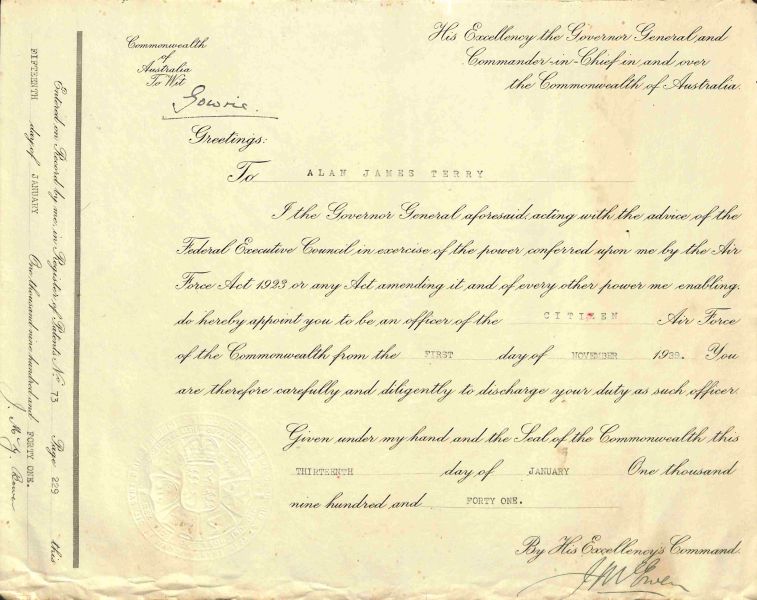 His Excellency the Governor General and
Commander-in-Chief in and over
the Commonwealth of Australia.
Commonwealth
of
Australia
To Wit
Gowrie.
Greetings:
To ALAN JAMES TERRY
I the Governor General aforesaid, acting with the advice of the
Federal Executive Council in exercise of the power conferred upon me by the Air
Force Act 1923 or any Act amending it and of every other power me enabling,
do hereby appoint you to be an officer of the CITIZEN Air Force
of the Commonwealth from the FIRST day of NOVEMBER 1939. You
are therefore carefully and diligently to discharge your duty as such officer.
Given under my hand and the Seal of the Commonwealth this
THIRTEENTH day of JANUARY One thousand
nine hundred and FORTY ONE.
By His Excellency's Command.
J McEwen
Entered on Record by me, in Register of Patents No 73 Page 229 this
FIFTEENTH day of JANUARY One thousand nine hundred and FORTY ONE.